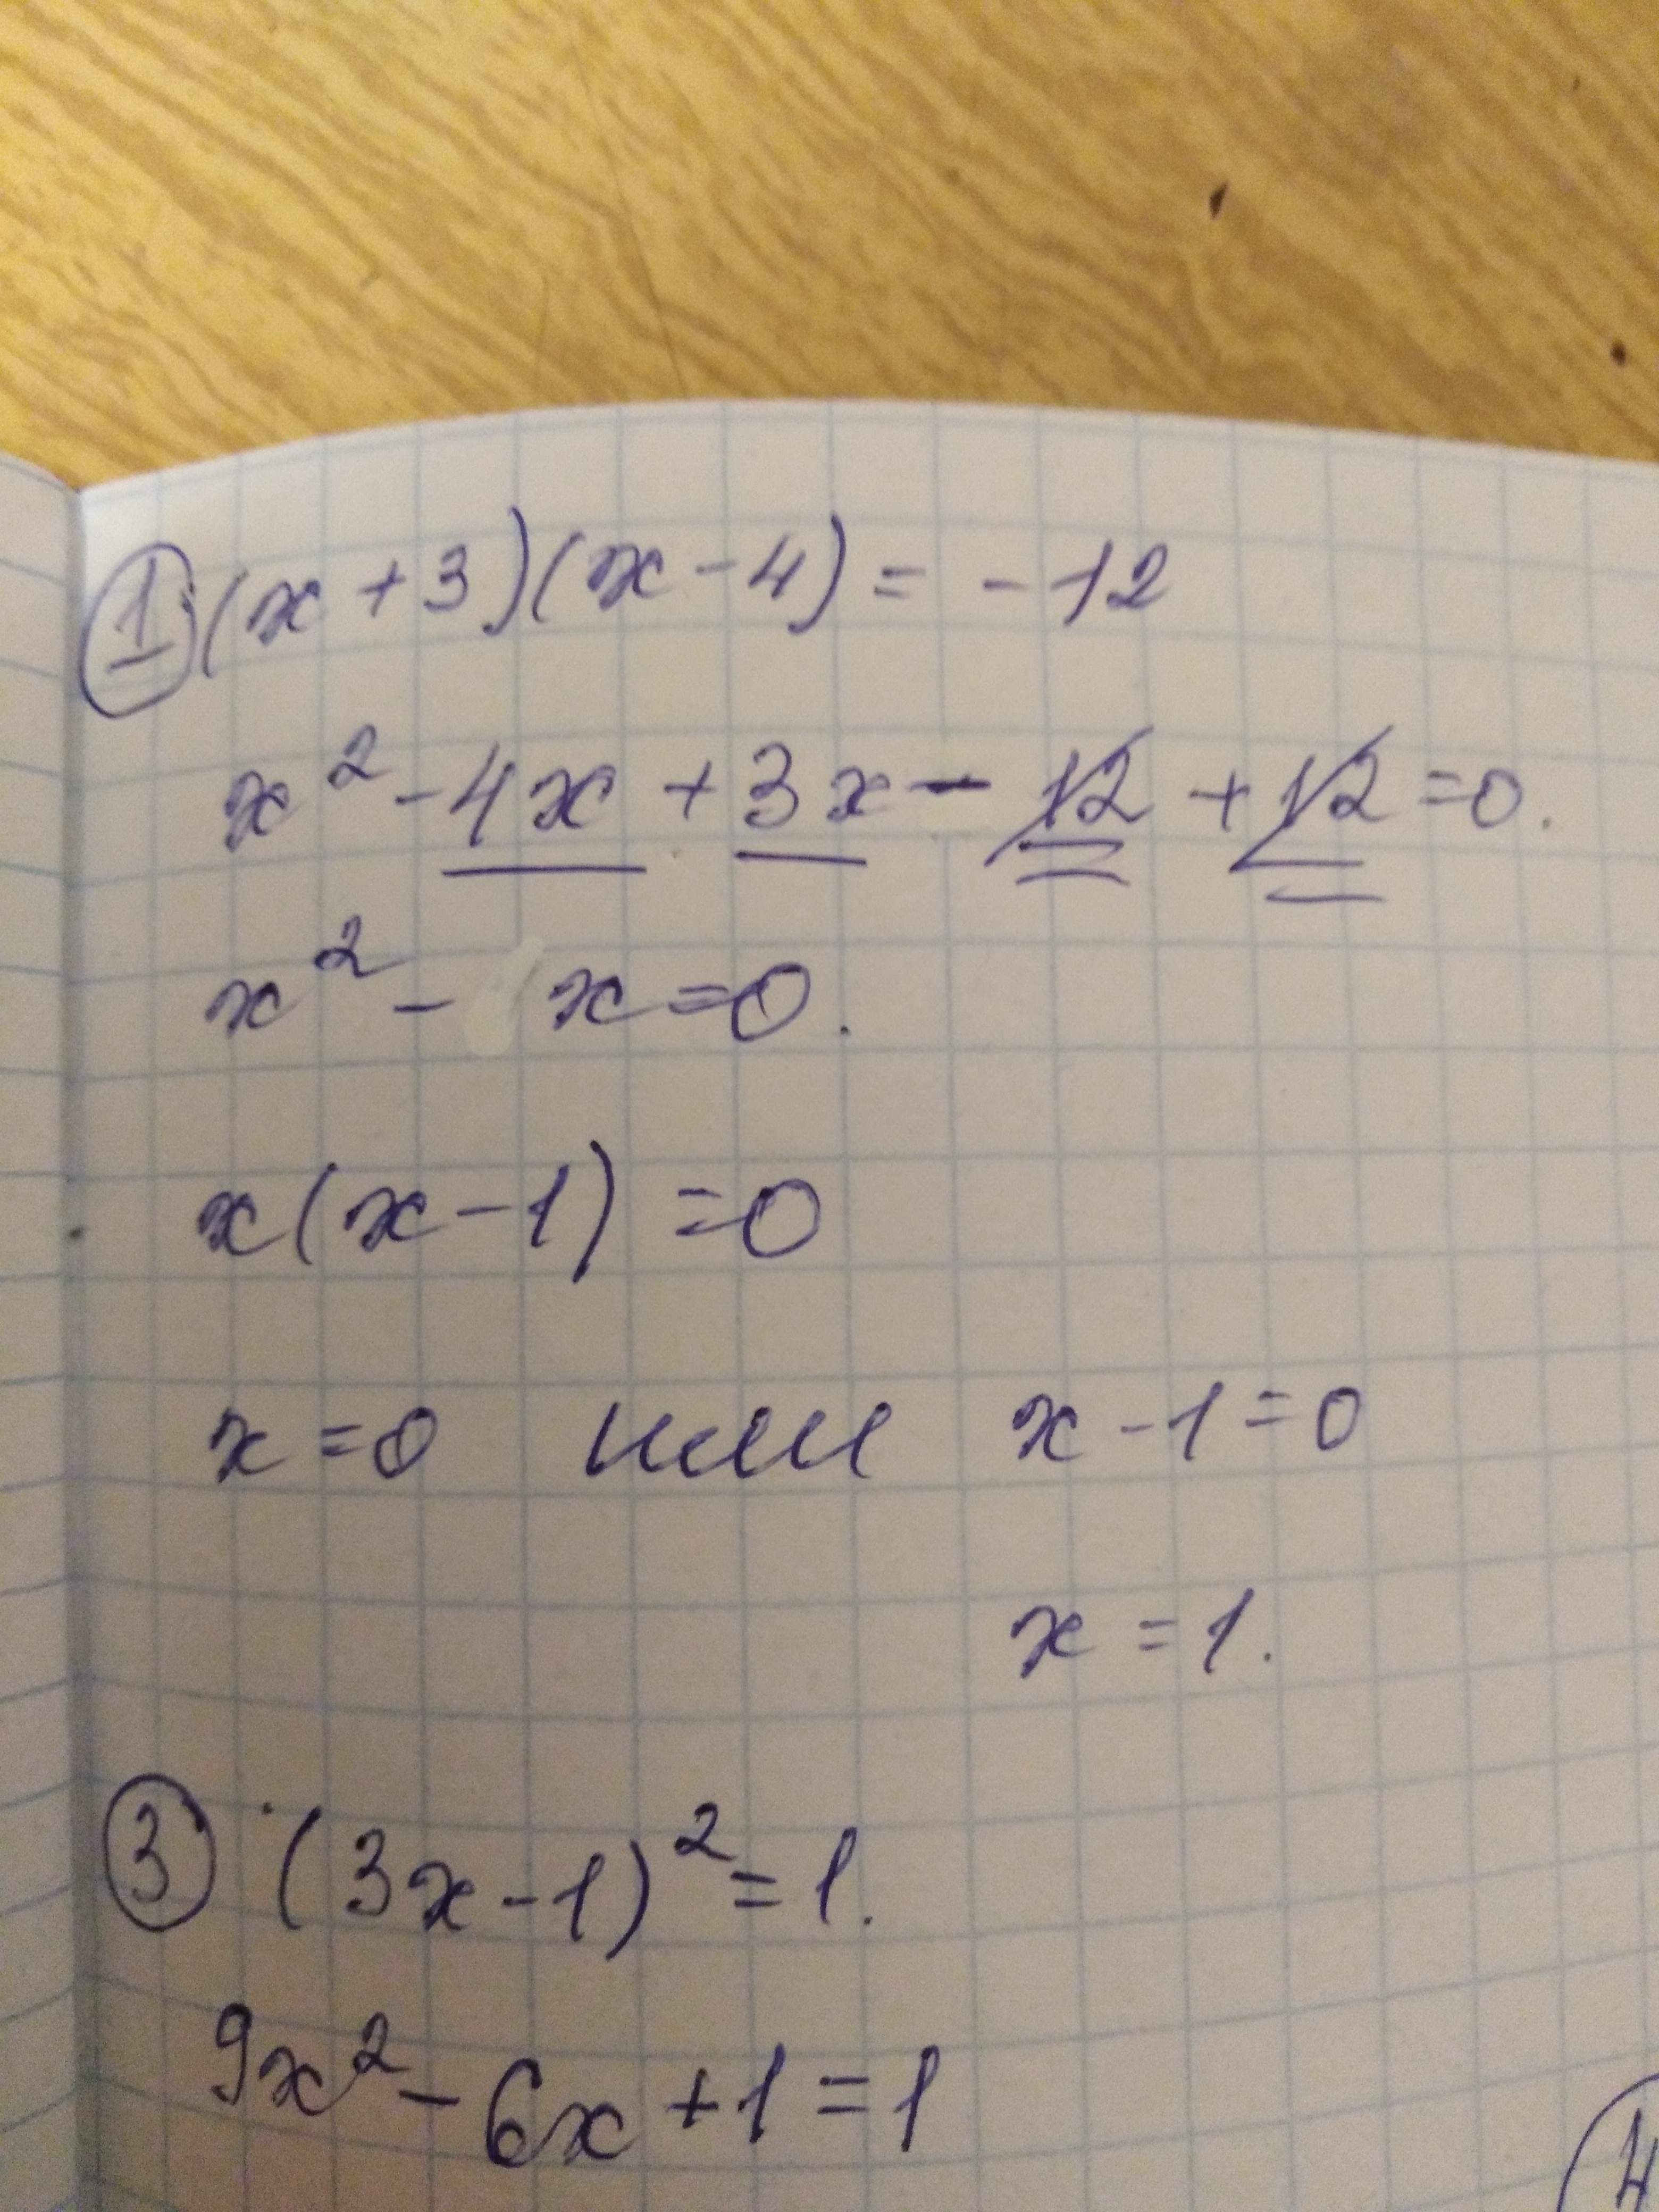 ① (x + 3)(x - 4) = - 12
x² - 4x + 3x - 12 + 12 = 0.
x² - x = 0.
x(x - 1) = 0
x = 0 или x - 1 = 0
x = 1.
③ (3x - 1)² = 1.
9x² - 6x + 1 = 1